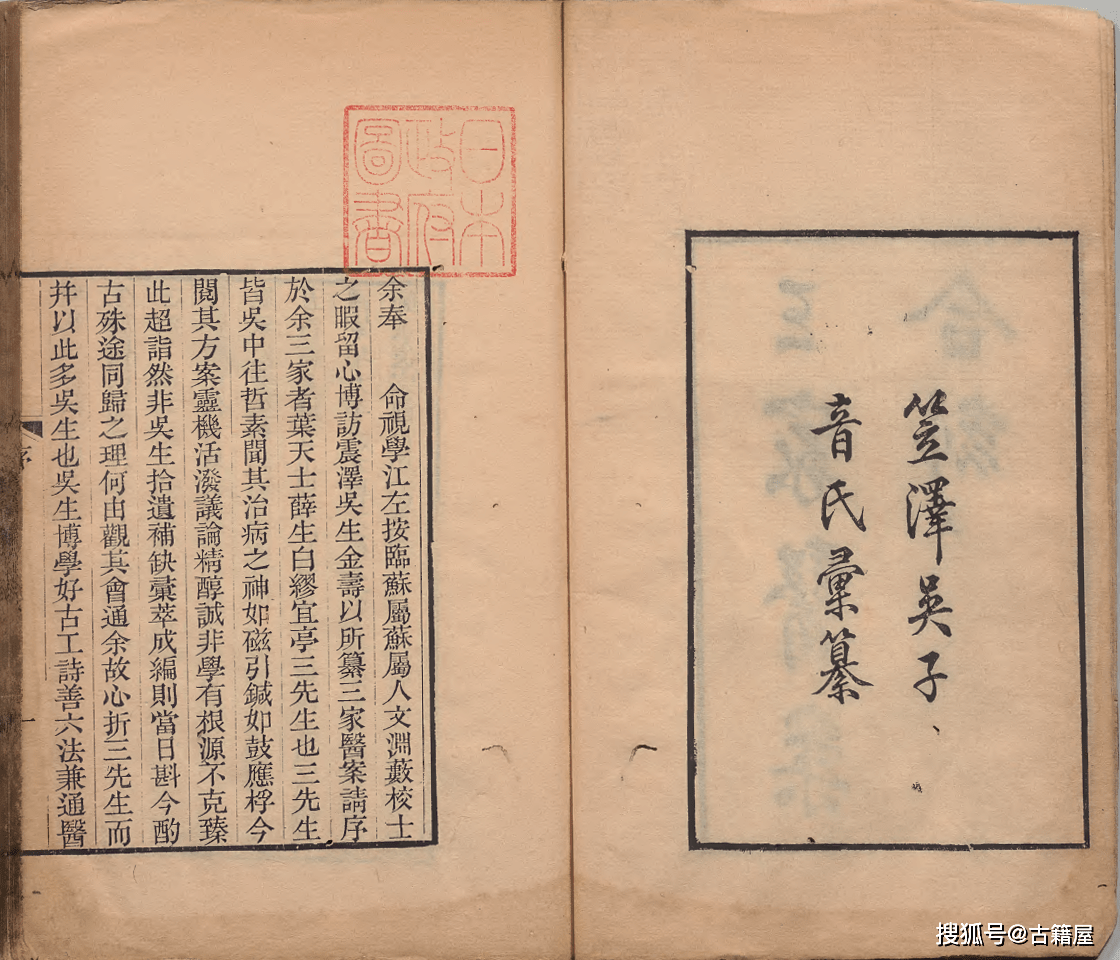 笠澤吳子、
音氏彙纂
日本
政府
圖書
余奉 命視學江左按臨蘇屬蘇屬人文淵藪校士
之暇留心博訪震澤吳生金壽以所纂三家醫案請序
於余三家者葉天士薛生白繆宜亭三先生也三先生
皆吳中往哲素聞其治病之神如磁引鍼如鼓應桴今
閱其方案靈機活潑議論精醇誠非學有根源不克臻
此超詣然非吳生拾遺補缺彙萃成編則當日斟今酌
古殊途同歸之理何由觀其會通余故心折三先生而
幷以此多吳生也吳生博學好古工詩善六法兼通醫
序
一
搜狐号@古籍屋